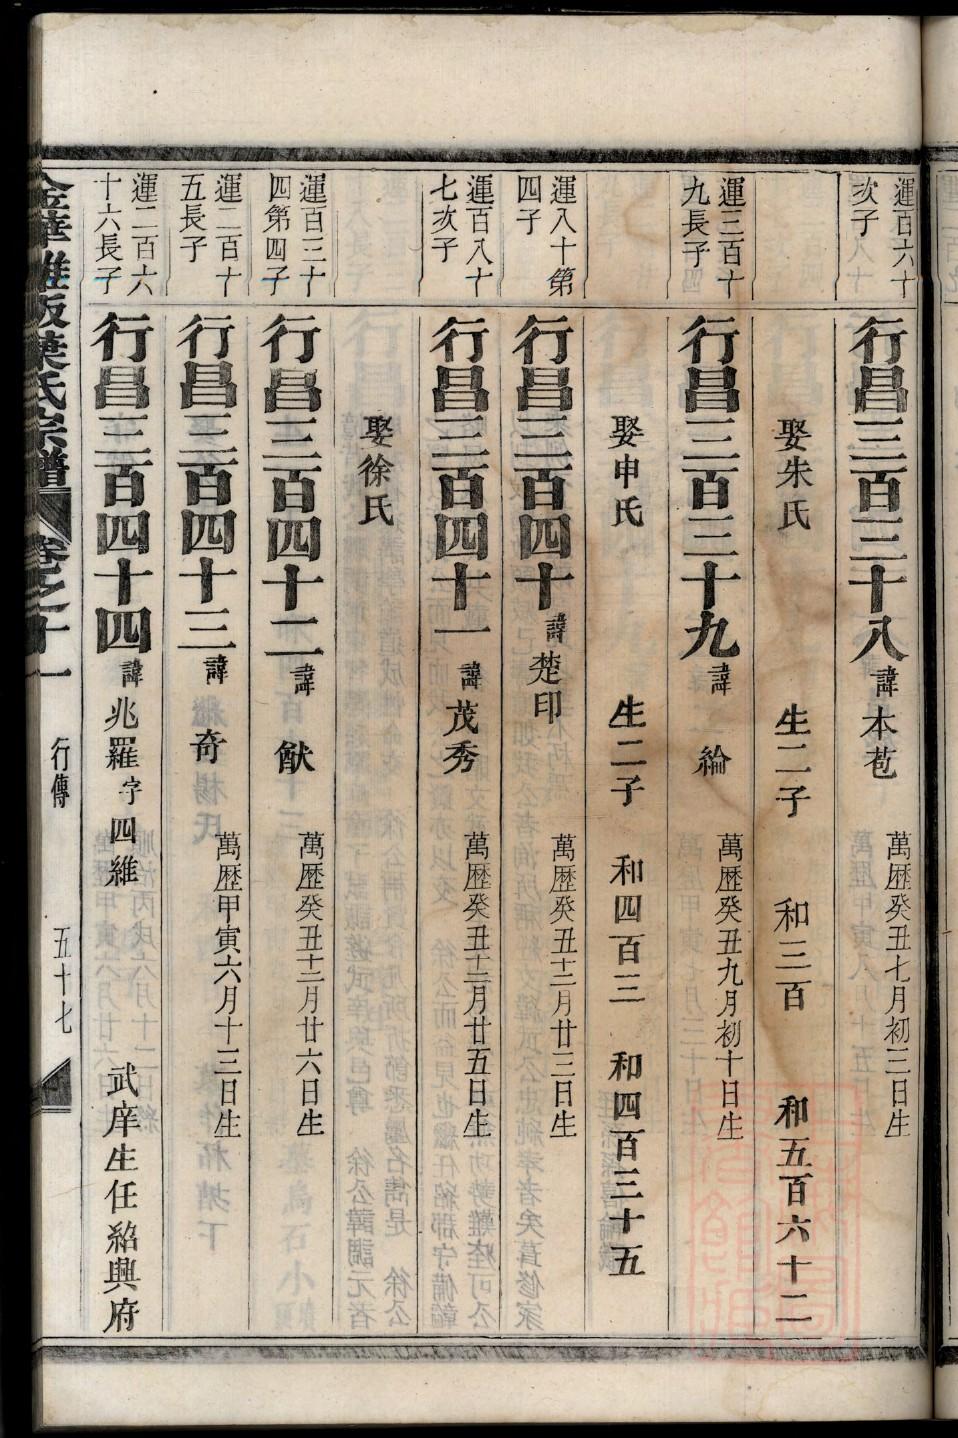 運百六十
次子
行昌三百三十八 諱 本苞 萬歷癸丑七月初三日生
娶朱氏 生二子 和三百 和五百六十二
運三百十
九長子
行昌三百三十九 諱 綸 萬歷癸丑九月初十日生
娶申氏 生二子 和四百三 和四百三十五
運八十第
四子
行昌三百四十 諱 楚印 萬歷癸丑十二月廿三日生
運百八十
七次子
行昌三百四十一 諱 茂秀 萬歷癸丑十二月廿五日生
娶徐氏
運百三十
四第四子
行昌三百四十二 諱 猷 萬歷癸丑十二月廿六日生
運二百十
五長子
行昌三百四十三 諱 奇 萬歷甲寅六月十三日生
運二百六
十六長子
行昌三百四十四 諱 兆羅 字 四維 武庠生任紹興府
金華 葉氏宗譜 卷之十一 行傳 五十七